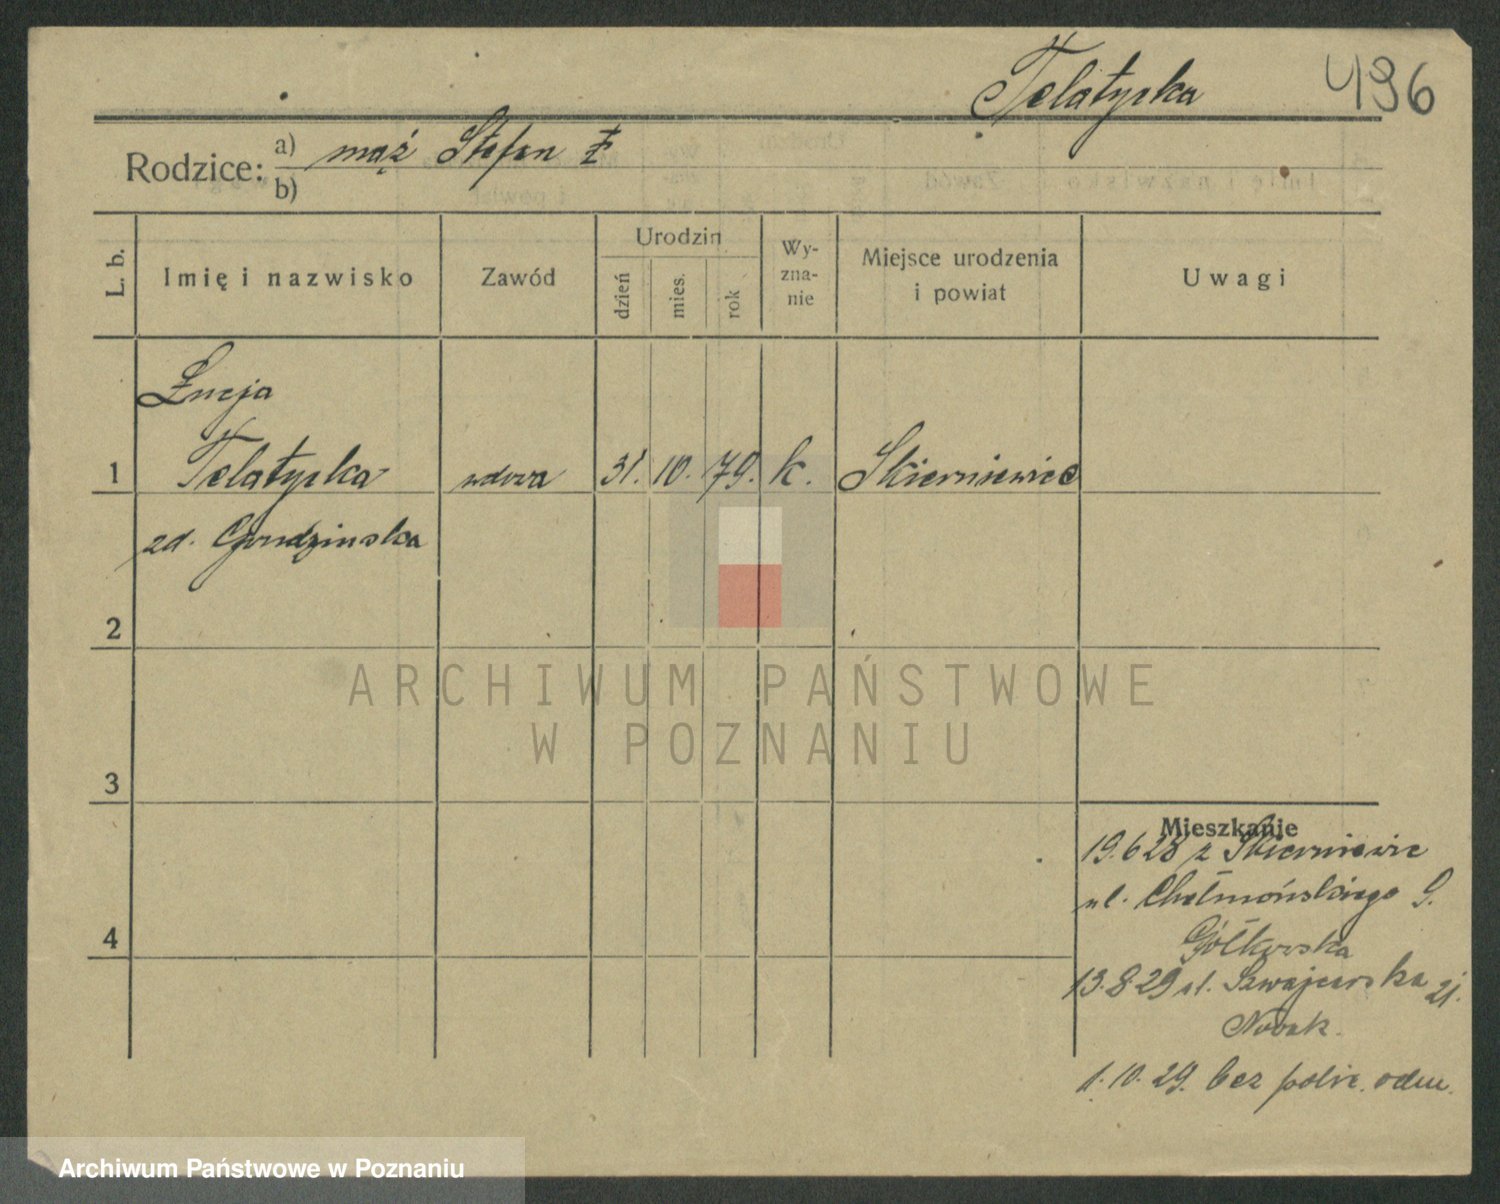 Telatycka 496
Rodzice: a) mąż Stefan Ł
b)
L. b. Imię i nazwisko Zawód Urodzin dzień mies. rok Wyzna-nie Miejsce urodzenia i powiat Uwagi
Łucja
1 Telatycka wdowa 31. 10. 79. k. Skierniewice
zd. Gondzinska
2
ARCHIWUM PAŃSTWOWE
W POZNANIU
3
Mieszkanie
19.6 28 z Skierniewic
ul. Chełmońskiego 9.
Gółkowska
4
13.8.29 ul. Szwajcarska 21.
Nowak.
1.10.29. bez polic. odm.
Archiwum Państwowe w Poznaniu